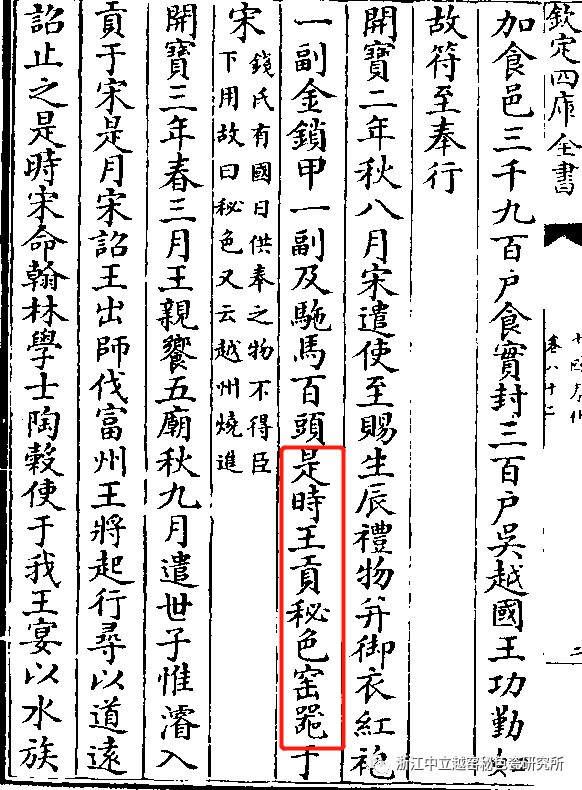 欽定四庫全書
加食邑三千九百户食實封三百户吳越國王功勤如
故符至奉行
開寶二年秋八月宋遣使至賜生辰禮物并御衣紅袍
一副金鎖甲一副及駞馬百頭是時王貢秘色窑器于
宋錢氏有國日供奉之物不得臣
下用故曰秘色又云越州燒進
開寶三年春三月王親饗五廟秋九月遣世子惟濬入
貢于宋是月宋詔王出師伐富州王將起行尋以道遠
詔止之是時宋命翰林學士陶穀使于我王宴以水族
浙江中立越窑秘色瓷研究所